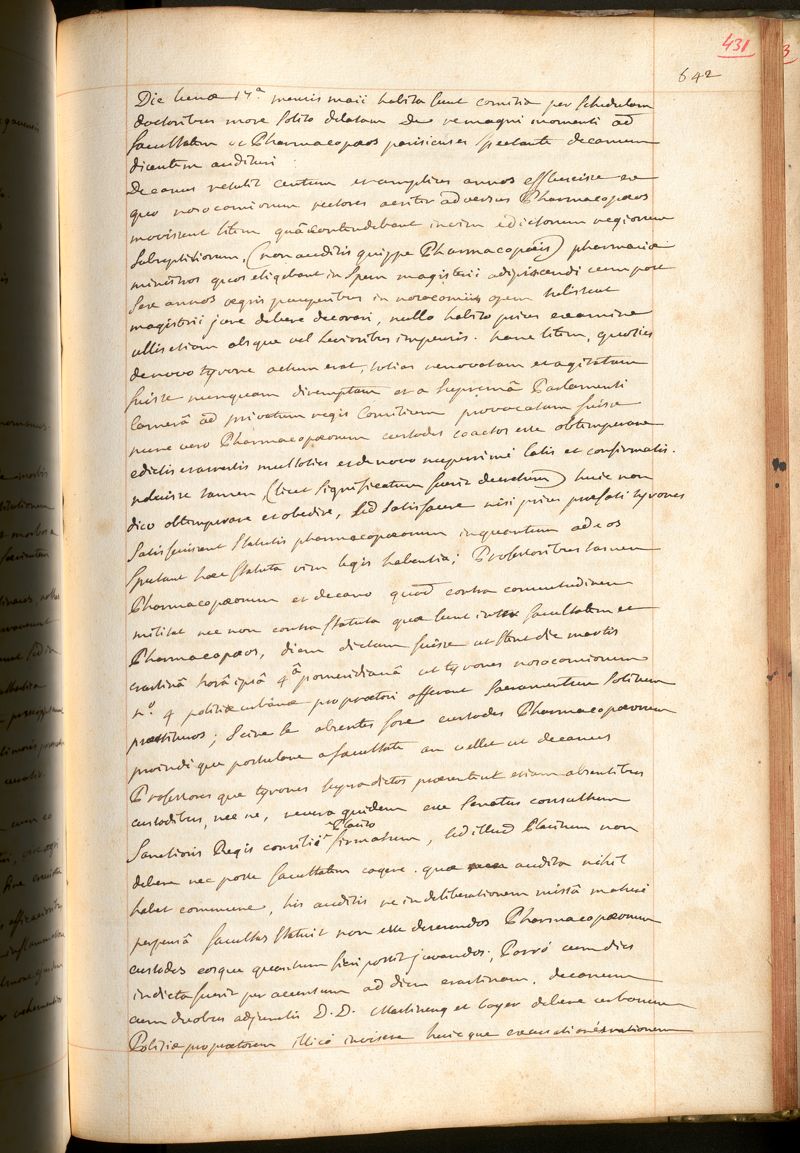 431
642
Die lunæ 17a mensis maii habita sunt comitia per schedulam
doctoribus more solito delatam De re magni momenti ad
facultatem et Pharmacopæos parisienses spectante decanum
dicentem audituri
Decanus retulit centum et amplius annos effluxisse ex
quo nosocomiorum rectores acriter adversus Pharmacopæos
movissent litem quâ contendebant in vim edictorum regiorum
subreptitiorum, (non auditis quippe Pharmacopæis) pharmaciæ
ministros quos eligebant in spem magisterii adipiscendi cum post
sex annos ægris pauperibus in nosocomiis opem tulissent
magisterii jure debere decorari, nullo habito prius examine
ullis etiam absque vel levioribus impensis. hanc litem, quoties
de novo tyrone actum erat, toties renovatam exagitatam
fuisse nunquam diremptam et a supremâ Parlamenti
camerâ ad privatum regis Consilium provocatam fuisse
nunc vero Pharmacopæorum custodes coactos esse obtemperare
edictis multoties et de novo nuperrimè latis et confirmatis.
noluisse tamen, (licet significatum fuerit decretum) huic non
dico obtemperare et obedire, sed satisfacere nisi prius præfati tyrones
satisfecissent statutis pharmacopæorum in quantum ad eos
spectant hæc statuta vim legis habentia; Professoribus tamen
Pharmacopæorum et decano quod contra consuetudinem
militat nec non contra statuta quæ sunt inter facultatem et
Pharmacopæos, diem dictam fuisse ut sient die martis
crastinâ horâ ipsâ 4â pomeridianâ ut tyrones nosocomiorum
no. 4 politiæ urbanæ proprætori afferant sacramentum solitum
præstituros; scire se absentes fore custodes Pharmacopæorum
proindi que postulare a facultate an vellet ut decanus
Professores que tyrones supradictos præsentent etiam absentibus
custodibus, nec ne, revera quidem esse senatus consultum
sanctioris Regis consilii Placito firmatum, sed illud Placitum non
debere nec posse facultatem cogere. quæ audita nihil
habet commune, his auditis re in deliberationem missâ maturè
perpensâ facultas statuit non esse deserendos Pharmacopæorum
custodes eosque quantum fieri possit juvandos; Porrò cum dies
indicta fuerit per accensum ad diem crastinam, decanum
cum duobus adjunctis D. D. Martineng et boyer debere urbanum
Politiæ proprætorem illicò invisere huicque excusationis rationem